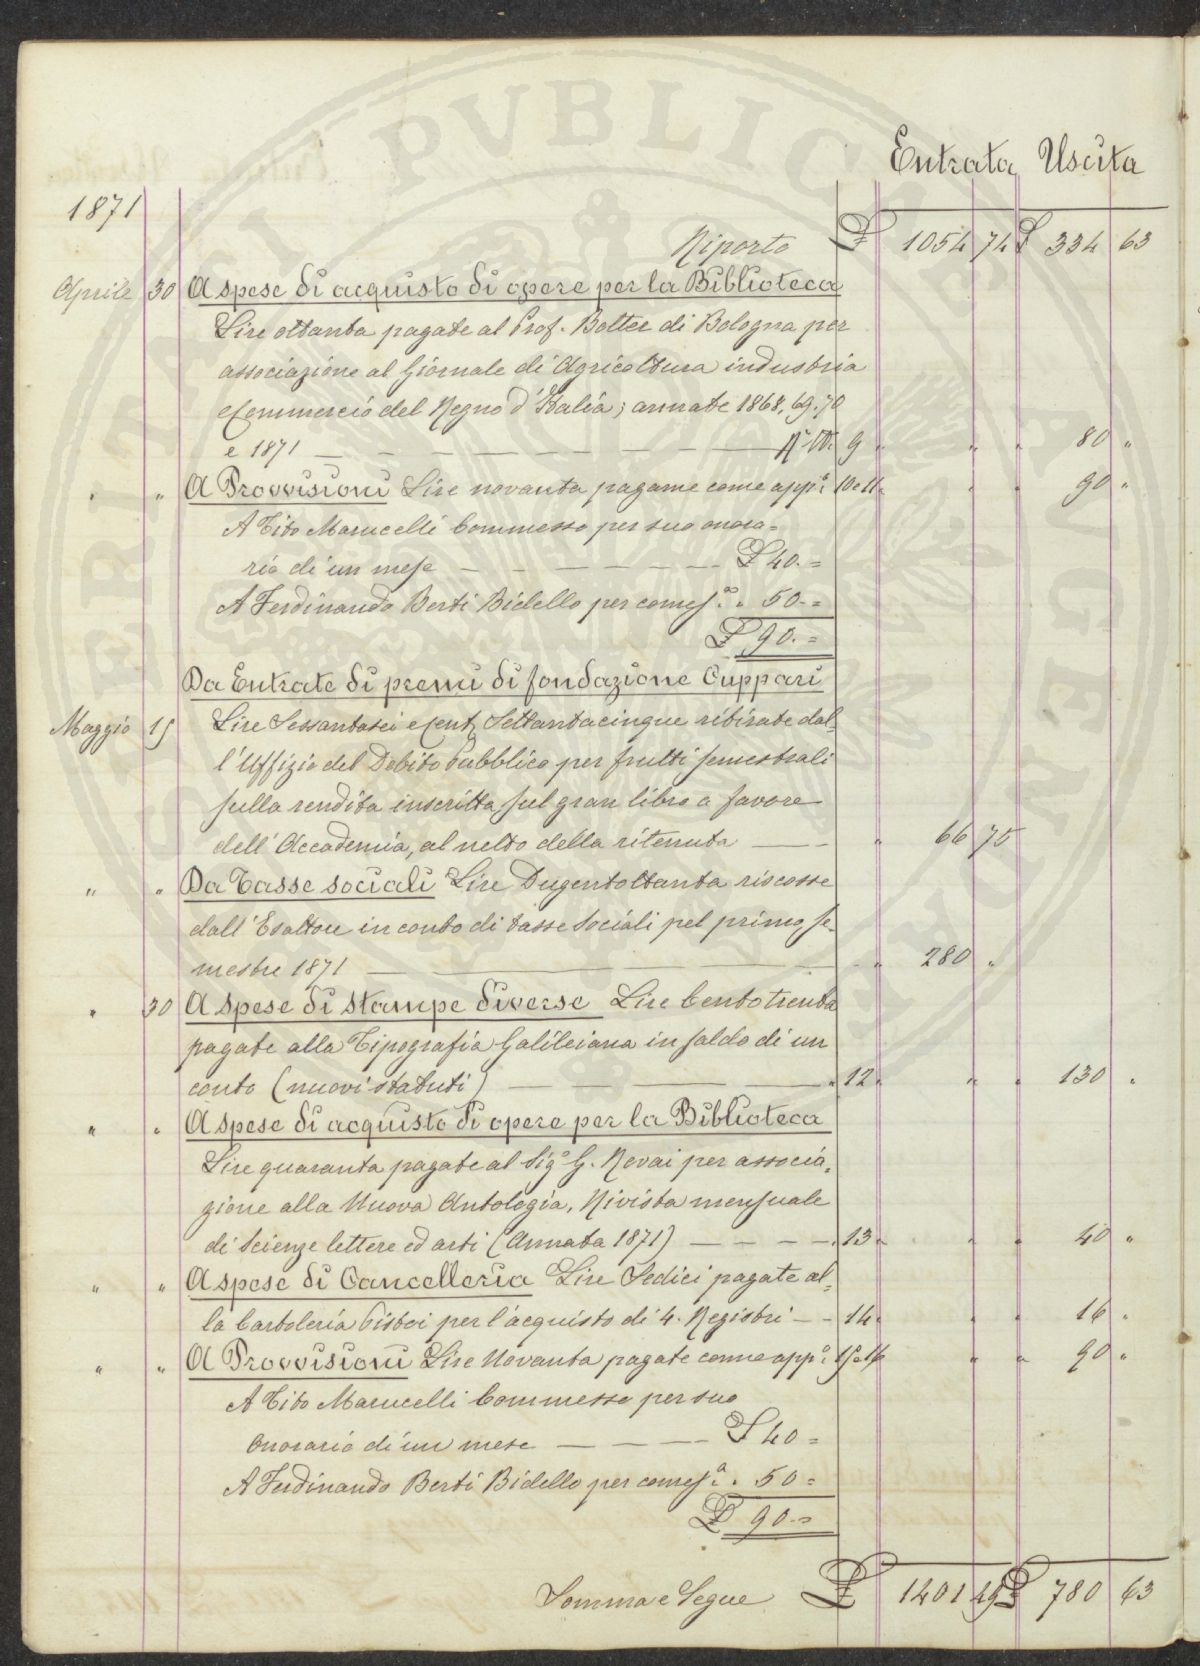 Entrata Uscita
1871
Riporto £ 1054 74 £ 334 63
Aprile 30 A spese di acquisto di opere per la Biblioteca
Lire ottanta pagate al Prof. Botter di Bologna per
associazione al Giornale di Agricoltura industria
e Commercio del Regno d'Italia; annate 1868, 69, 70
e 1871 — — — — — — — — 9 " " " 80 "
" " A Provvisioni Lire novanta pagame come app.ª 10 e 11 " " " 90 "
A Tito Marucelli Commesso per suo onora=
rio di un mese — — — — — — £ 40.=
A Ferdinando Berti Bidello per come s.ª " 50.=
£ 90.=
Da Entrate di premi di fondazione Cuppari
Maggio 15 Lire Sessantasei e Cent. Settantacinque ritirate dal=
l'Uffizio del Debito Pubblico per frutti semestrali
sulla rendita inscritta sul gran libro a favore
dell'Accademia, al netto della ritenuta — — " 66 75
" " Da Tasse sociali Lire Dugentottanta riscosse
dall'Esattore in conto di tasse Sociali pel primo se=
mestre 1871 — — — " 280 "
" 30 A spese di stampe diverse Lire Cento trenta
pagate alla Tipografia Galileiana in saldo di un
conto (nuovi statuti) — — — — " 12 " " " 130 "
" " A spese di acquisto di opere per la Biblioteca
Lire quaranta pagate al Sig.º G. Novai per associa=
zione alla Nuova Antologia, Rivista mensuale
di Scienze lettere ed arti (Annata 1871) — — — — " 13 " " " 40 "
" " A spese di Cancelleria Lire Sedici pagate al=
la Cartoleria Pistoi per l'acquisto di 4. Registri — — 14 " " " 16 "
" " A Provvisioni Lire Novanta pagate come app.ª 15 e 16 " " 90 "
A Tito Marucelli Commesso per suo
Onorario di un mese — — — — £ 40 =
A Ferdinando Berti Bidello per come s.ª " 50 =
£ 90.=
Somma e Segue £ 1401 49 £ 780 63